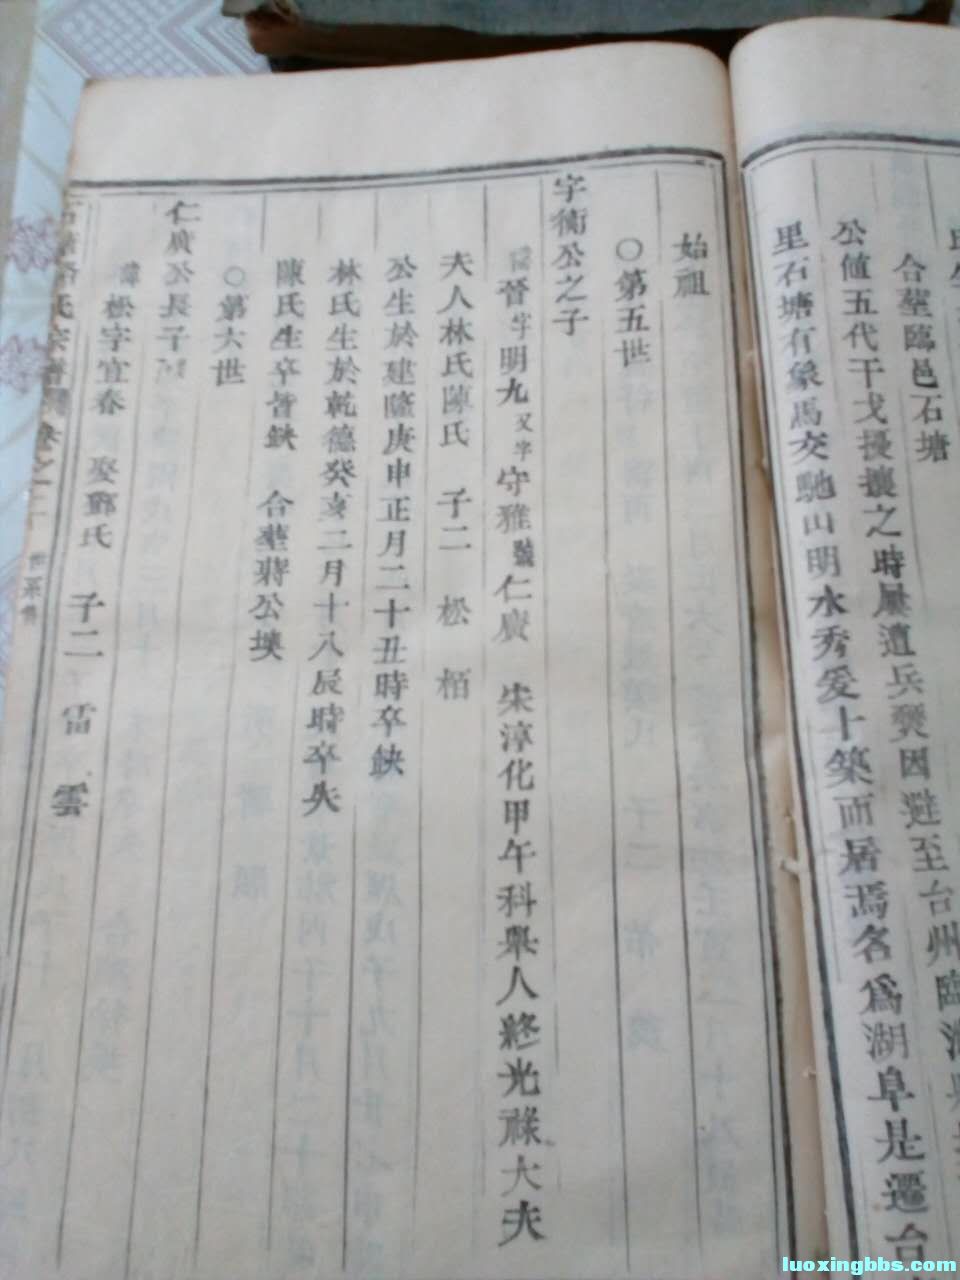 合塟臨邑石塘
公値五代干戈擾攘之時屢遭兵燹因避至台州臨海
里石塘有象馬交馳山明水秀爰卜築而居焉名爲湖阜是遷台
始祖
○第五世
字衡公之子
諱晉字明九又字守雅號仁廣 宋淳化甲午科舉人終光祿大夫
夫人林氏陳氏 子二 松 栢
公生於建隆庚申正月二十丑時卒缺
林氏生於乾德癸亥二月十八辰時卒失
陳氏生卒皆缺 合塟蔣公墺
○第六世
仁廣公長子
諱松字宜春 娶鄭氏 子二 雷 雲
氏宗譜 卷之二
luoxingbbs.com